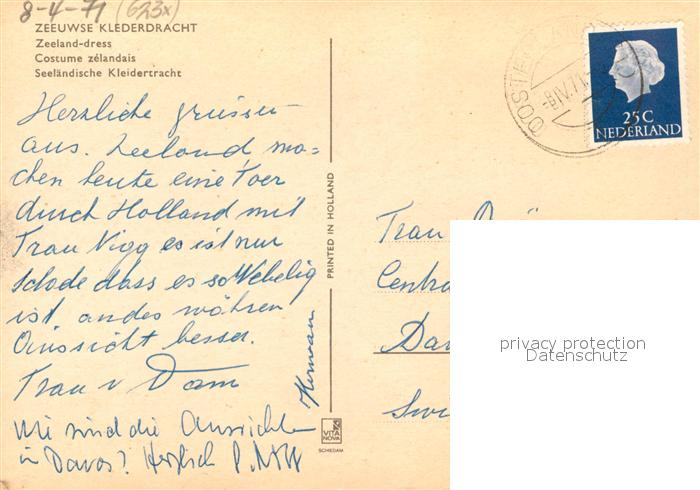 8-4-71 (623x)
ZEEUWSE KLEDERDRACHT
Zeeland-dress
Costume zélandais
Seeländische Kleidertracht
Herzliche grüssen
aus. Zeeland ma=
chen heute eine Toer
durch Holland mit
Frau Vigg es ist nur
schade dass es so Nebelig
ist andes währen
Aussicht besser.
Frau v Dam
Herman
Wie sind die Aussichten
in Davos? Herzlich P.
PRINTED IN HOLLAND
VITA NOVA
SCHIEDAM
OOSTERLAND
-8.IV.71
25C
NEDERLAND
Frau
Central
Da
Swi
privacy protection
Datenschutz